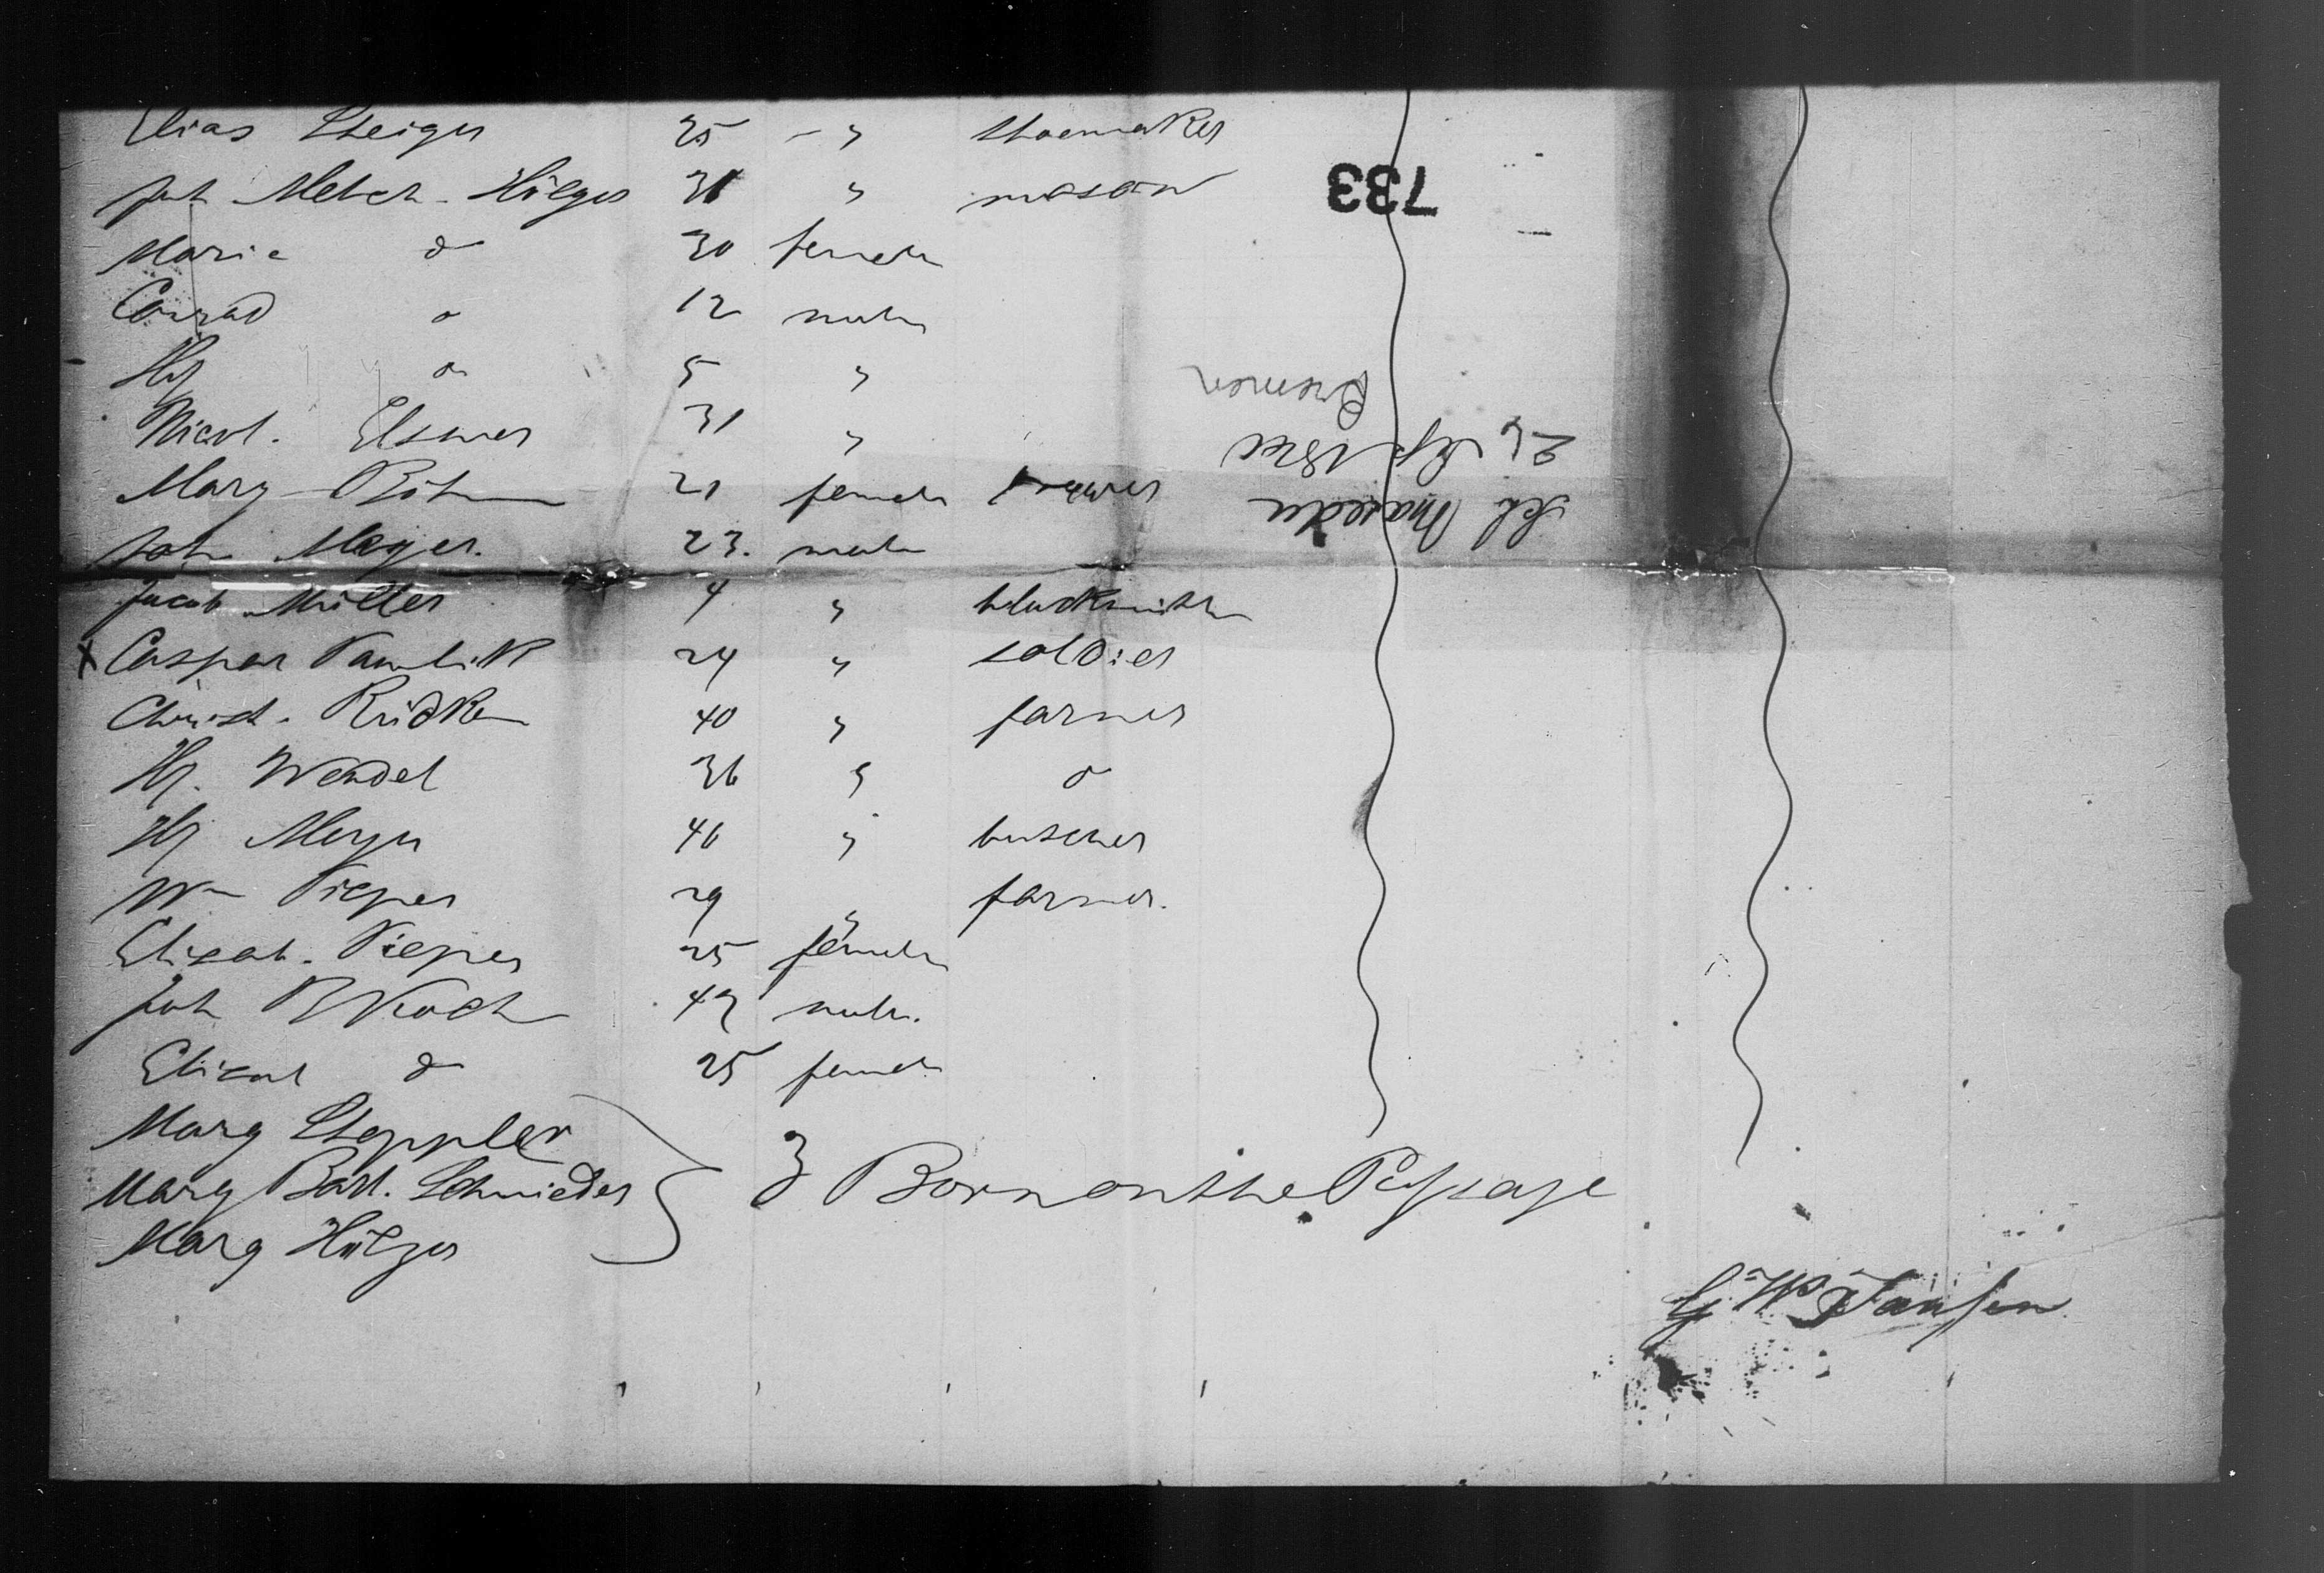 Elias Steiger 25 " shoemaker
Joh Melch. Hölzer 31 " mason
Marie do 30 female
Conrad do 12 male
Hy do 5 "
Nicol. Elsner 31 "
Marg Böhm 21 female
Joh Meyer. 23. male
Jacob Müller 4 " blacksmith
x Caspar 24 " soldier
Christ. Rüdke 40 " farmer
Hy. Wendel 36 " do
Hy Meyer 46 " butcher
Wm Pieper 29 " farmer.
Elisab. Pieper 25 female
Joh B Koch 43 male.
Elisab do 25 female
Marg Steppler
Marg Barb. Schmieder
Marg Hölzer
3 Born on the Passage
G W Janssen
733
Bremen
Sept